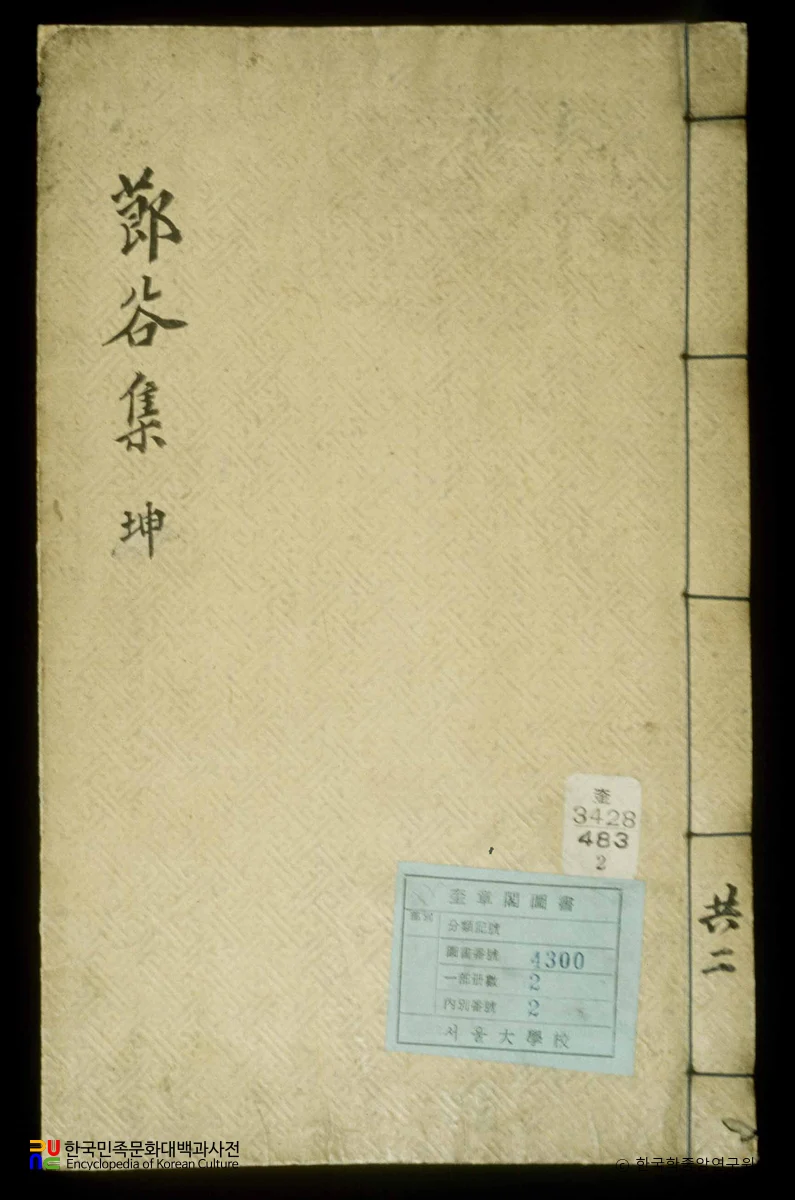 莭谷集 坤
奎
3428
483
2
奎章閣圖書
分類記號
圖書番號 4300
一部册數 2
內別番號 2
서울大學校
共二
한국민족문화대백과사전
Encyclopedia of Korean Culture
© 한국학중앙연구원